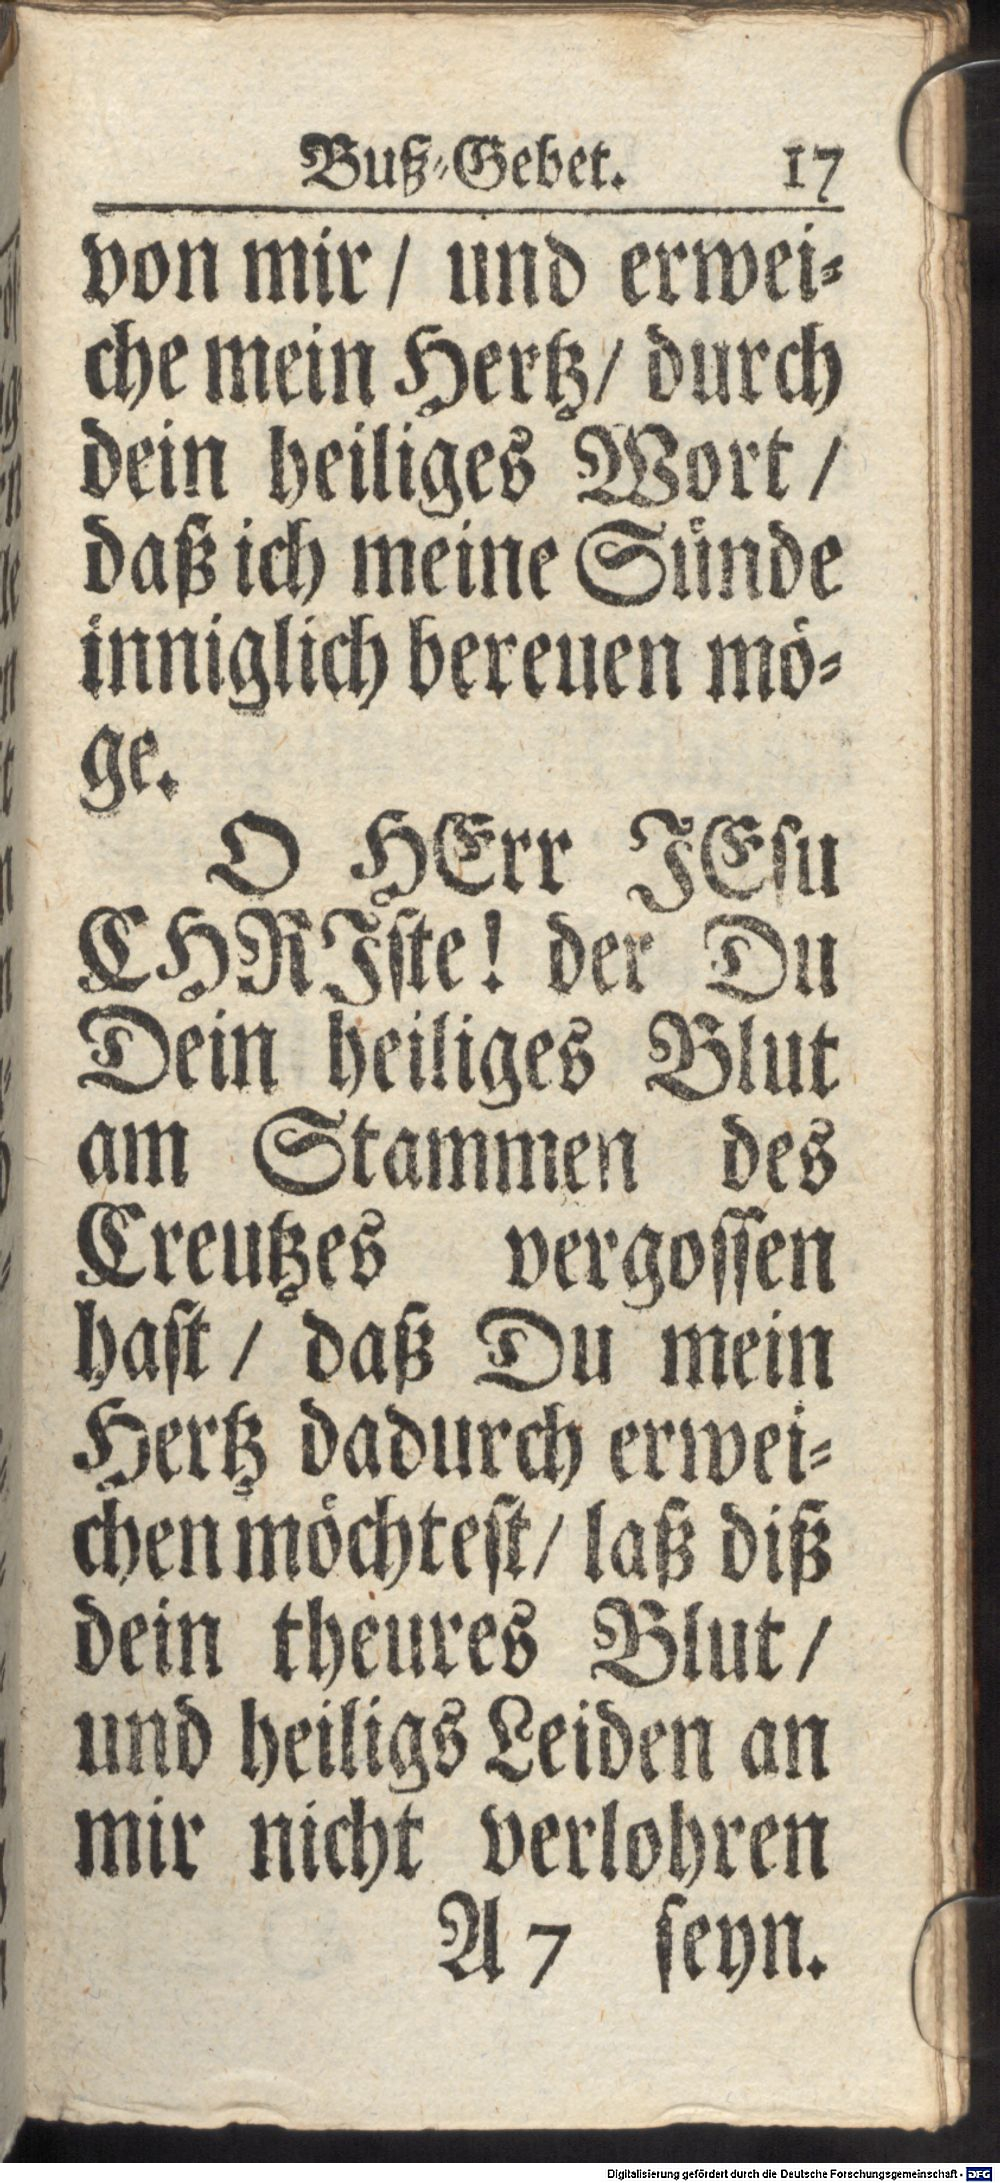 Buß-Gebet. 17
von mir / und erwei-
che mein Hertz / durch
dein heiliges Wort /
daß ich meine Sünde
inniglich bereuen mö-
ge.
O HErr JEsu
CHRJste! der Du
Dein heiliges Blut
am Stammen des
Creutzes vergossen
hast / daß Du mein
Hertz dadurch erwei-
chen möchtest / laß diß
dein theures Blut /
und heiligs Leiden an
mir nicht verlohren
A 7 seyn.
Digitalisierung gefördert durch die Deutsche Forschungsgemeinschaft - DFG